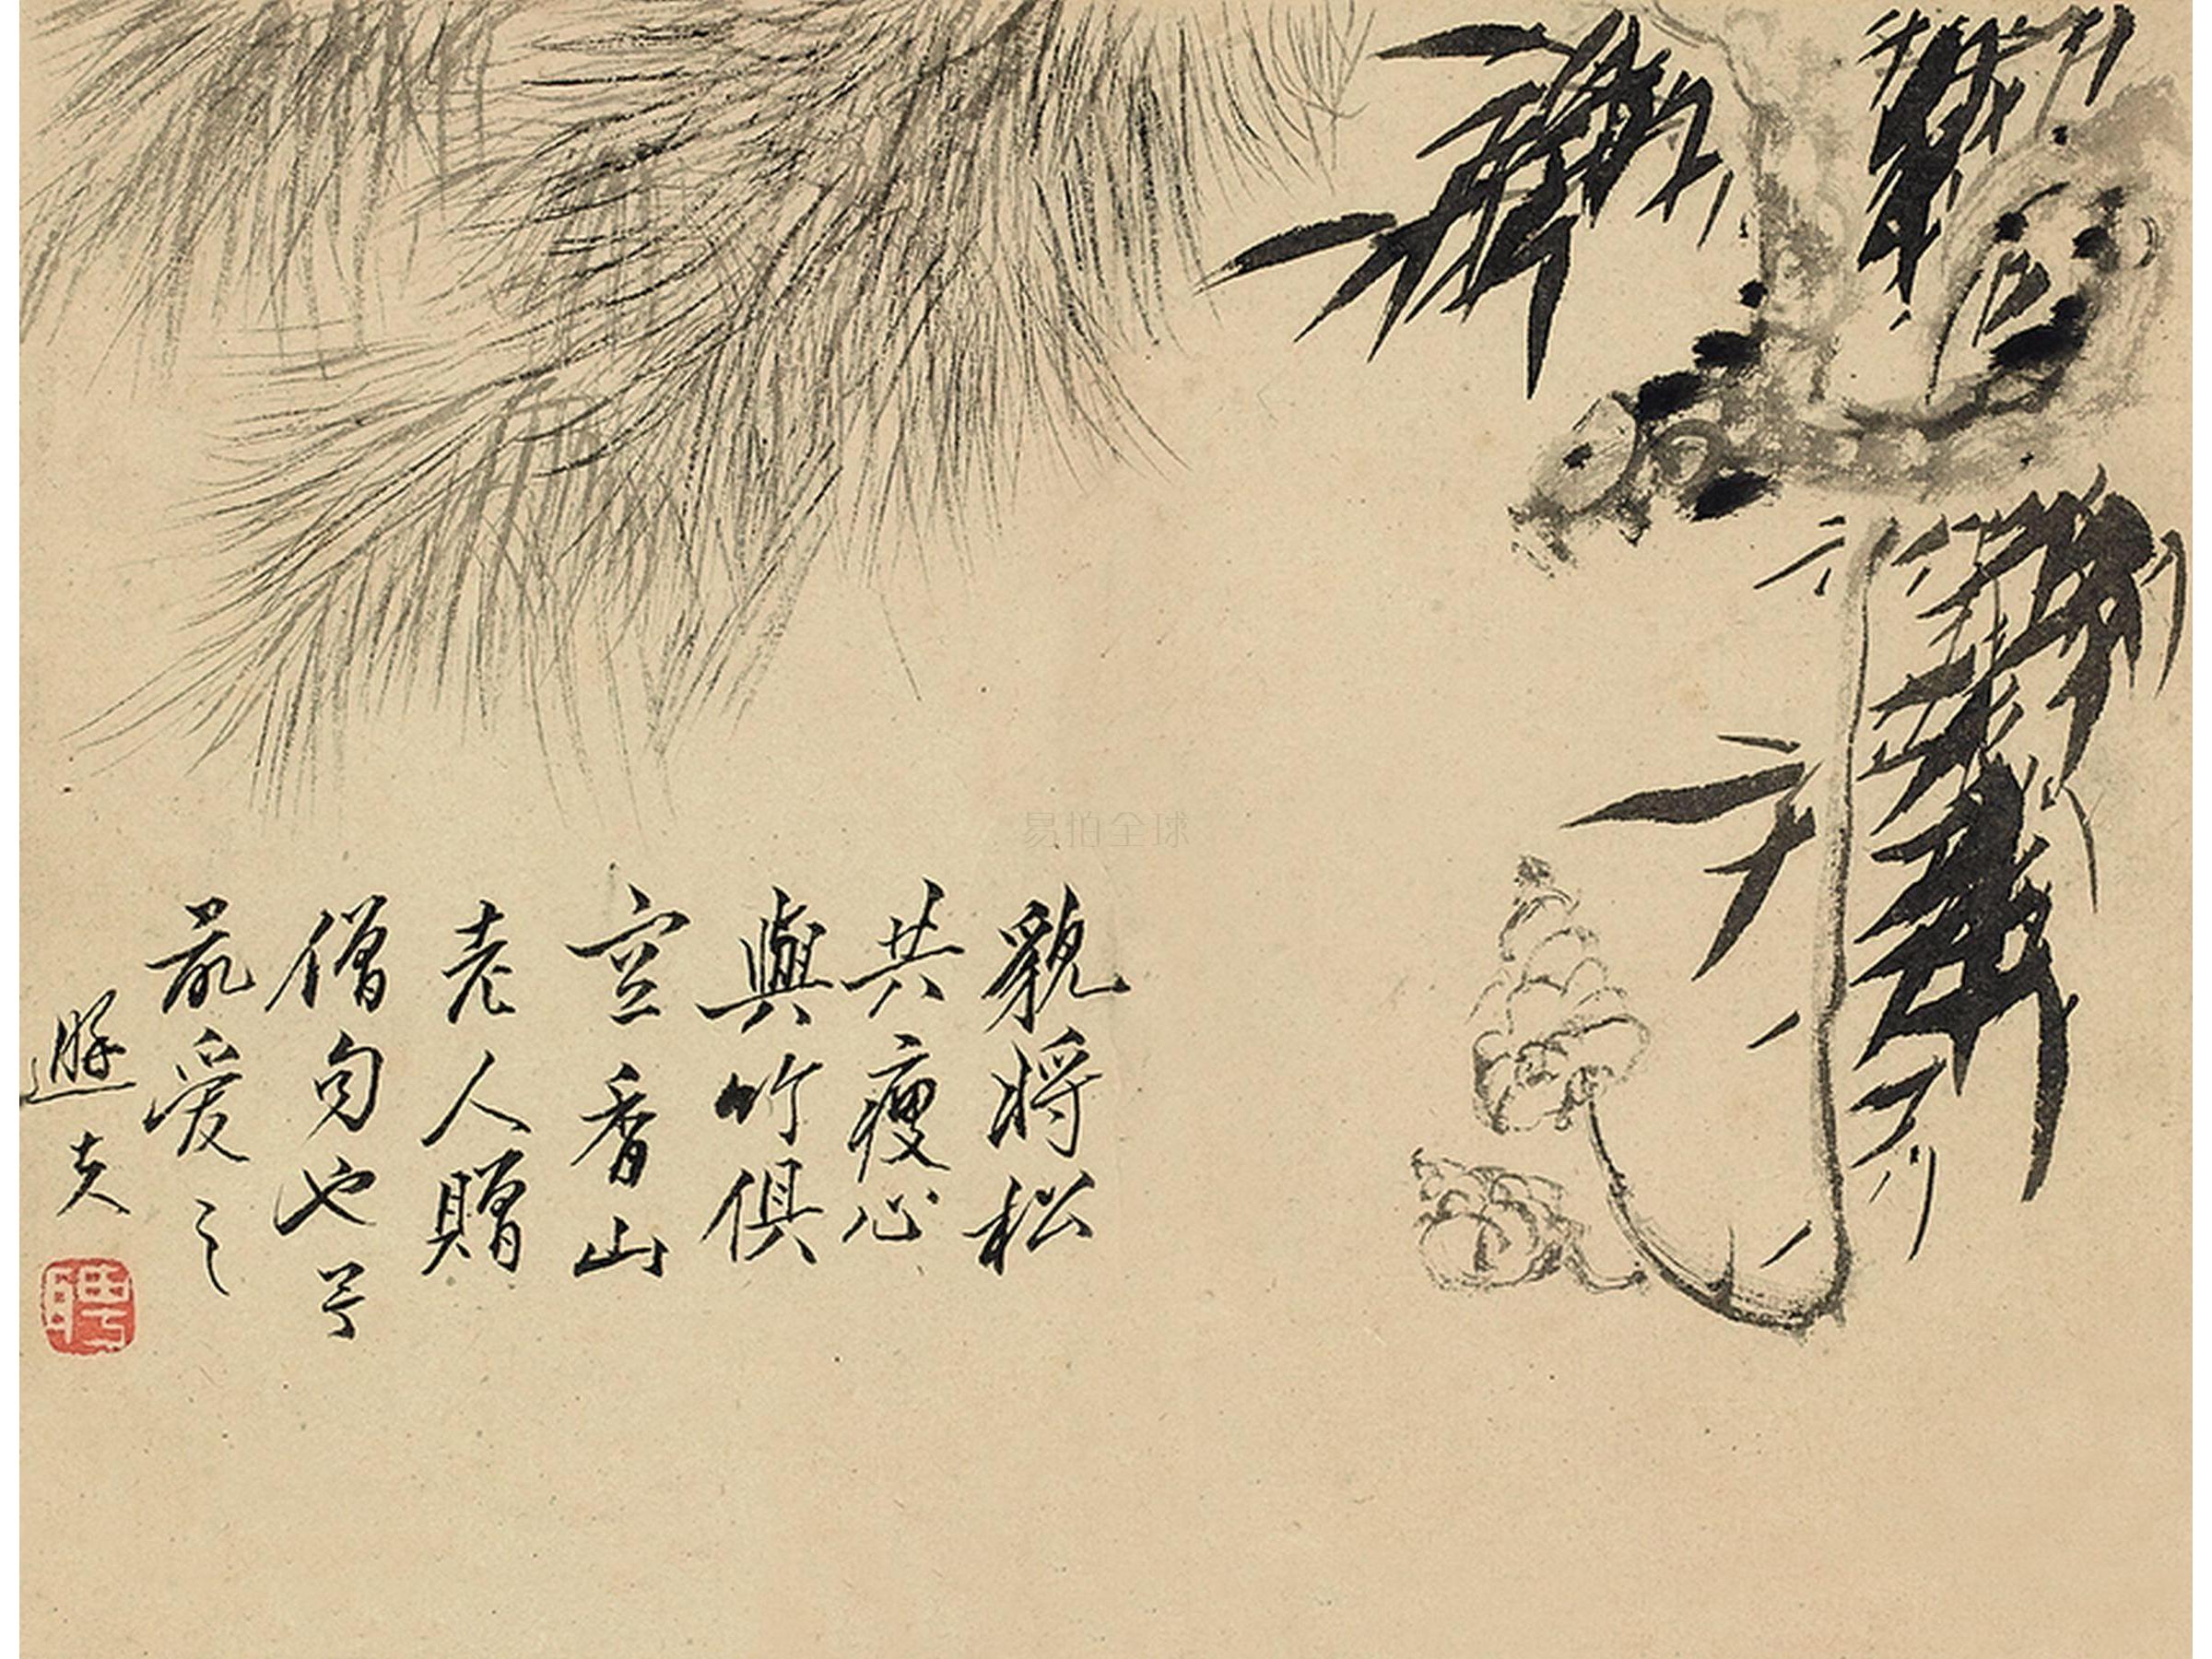 貌將松
共瘦心
與竹俱
空香山
老人贈
僧句也
最愛之
易拍全球